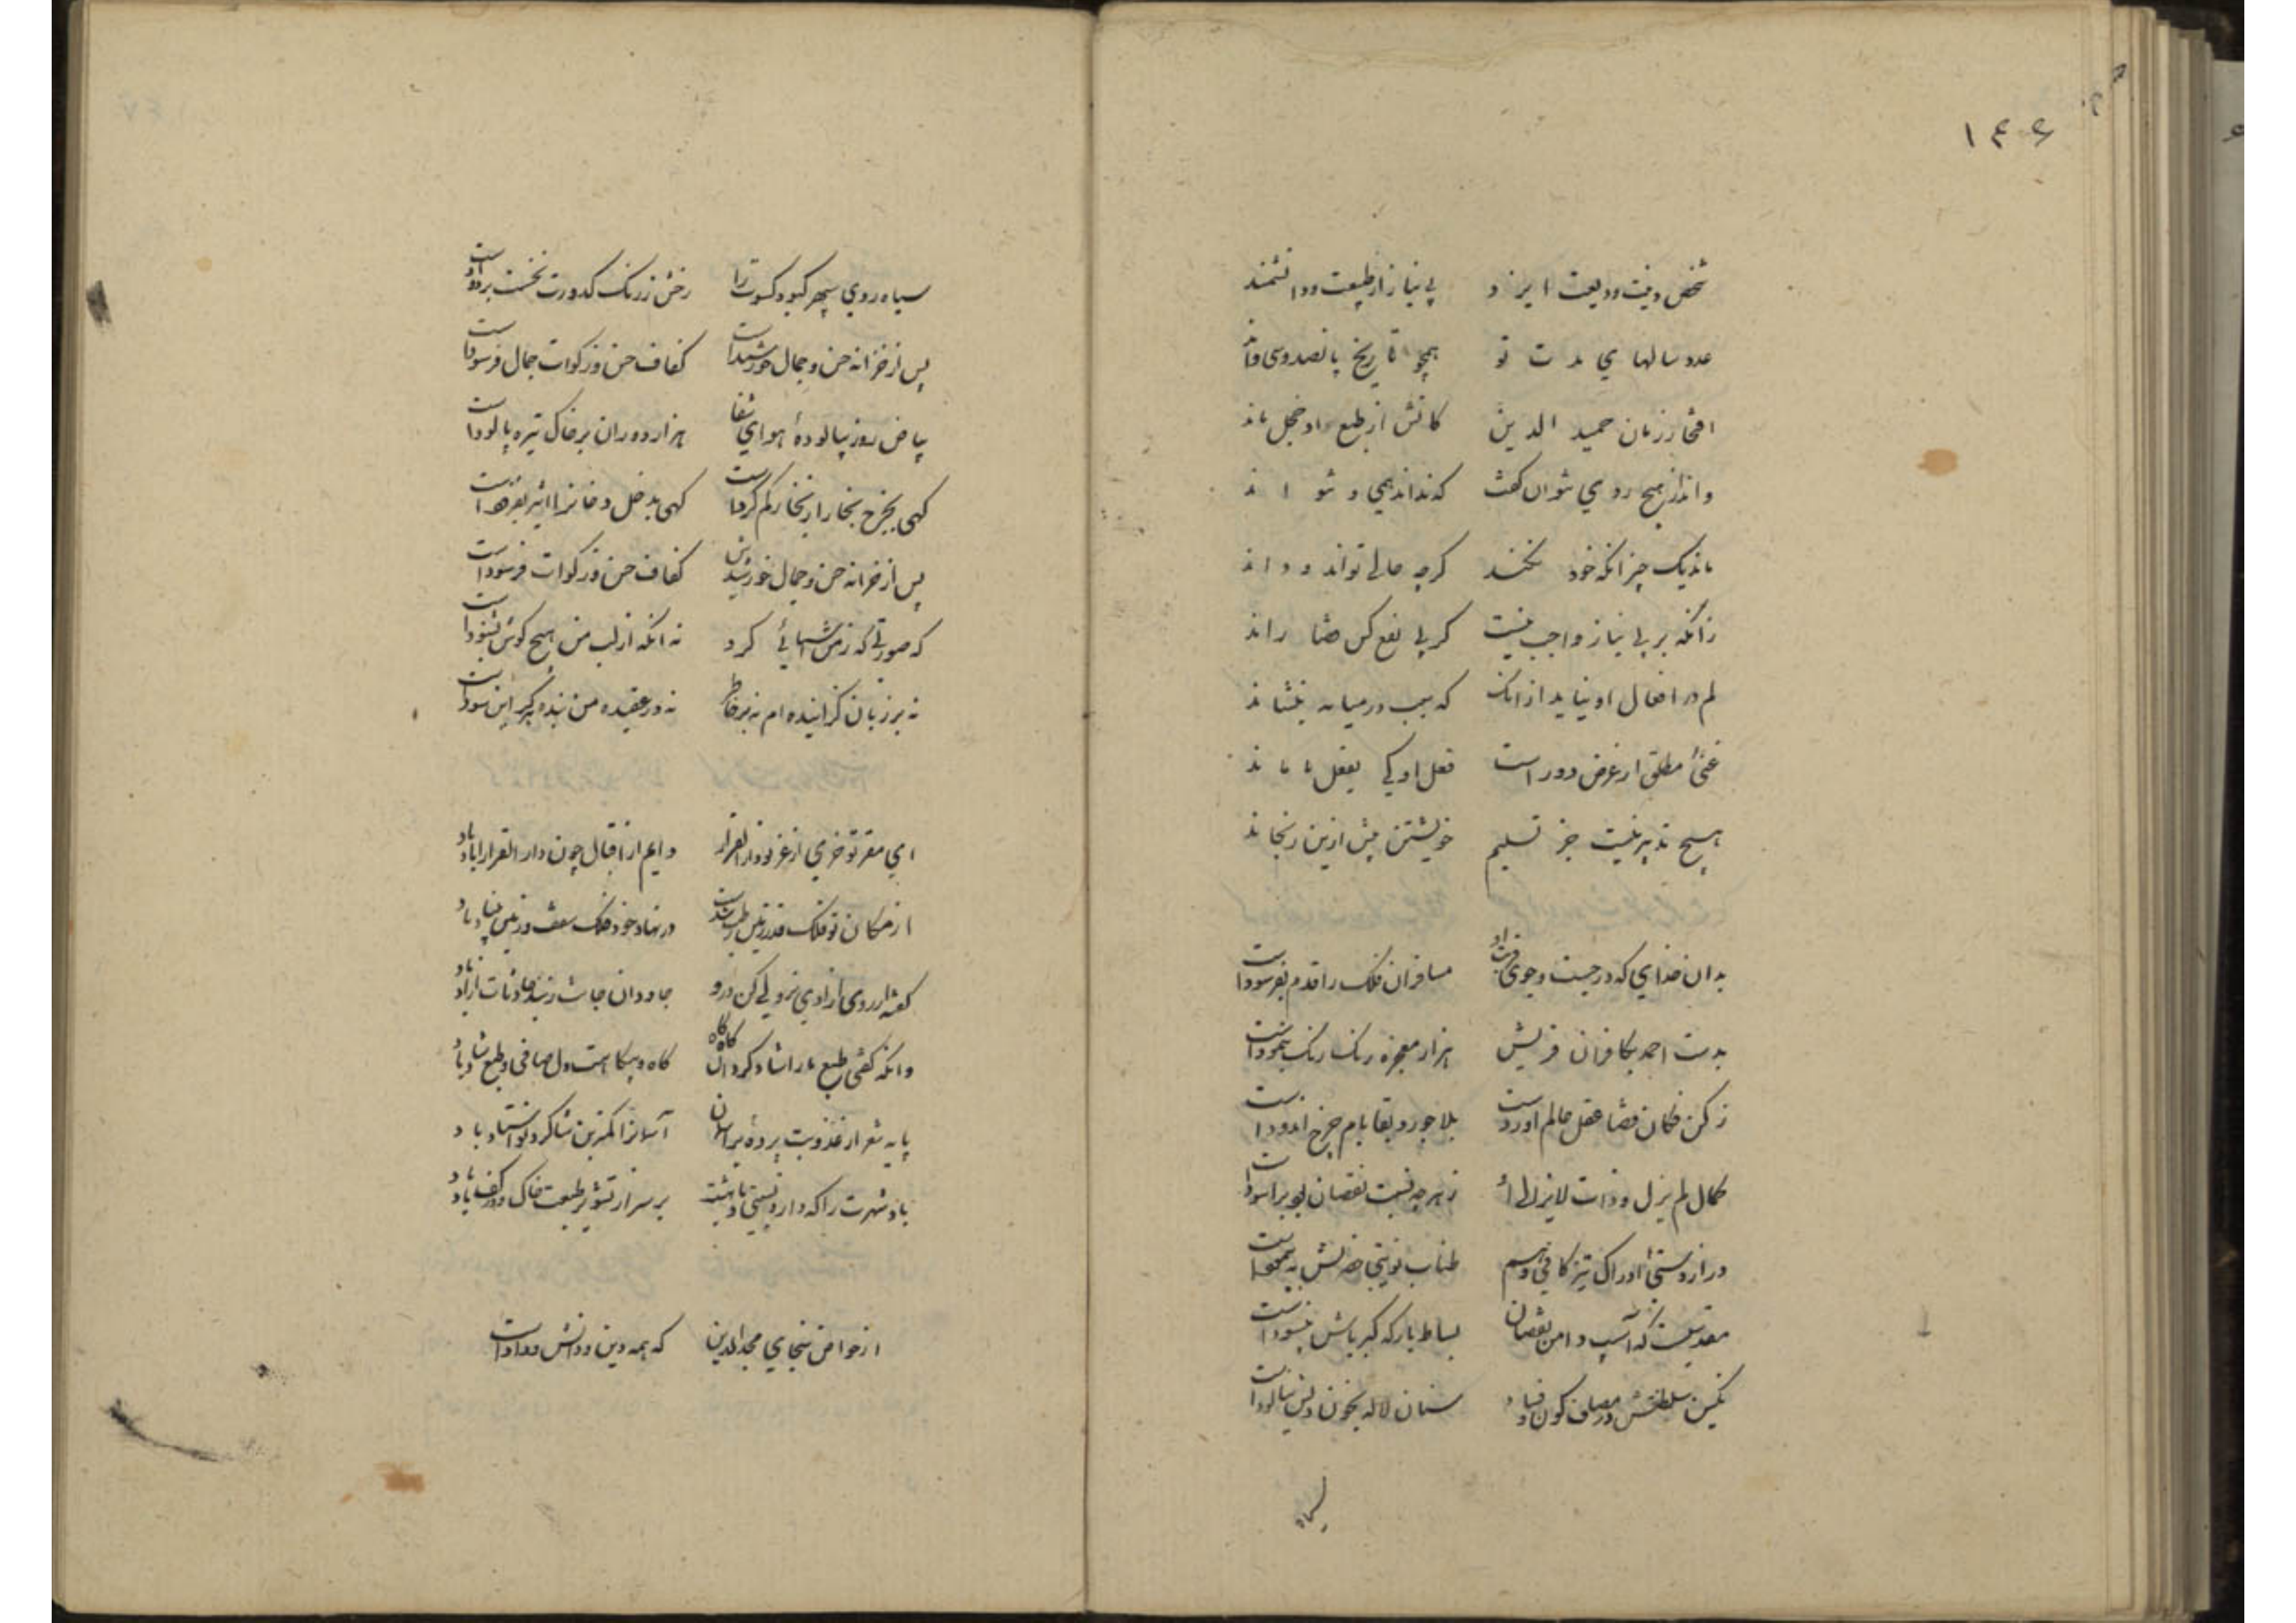 ۱۴۶
شخص دقیقت ودیعت ایزد بی نیاز از طبیعت ودانشمند
عدد سالهای مدت تو همچو تاریخ پانصد وسی واند
افتخار زمان حمید الدین کانش از طبع راد خجل ماند
واندر هیچ روی نتوان گفت که نداند همی و نتواند
ماند یک چیز انکه خود نکند گرچه حالی تواند و داند
زانکه بر بی نیاز واجب نیست کز پی نفع کس قضا راند
لم در افعال او نیاید ازانک که سبب درمیانه بنشاند
غنی مطلق از غرض دور است فعل او کی بفعل ما ماند
هیچ تدبیر نیست جز تسلیم خویشتن بیش ازین نرنجاند
بدان خدای که در جست وجوی قدرت او مسافران فلک را قدم بفرسودست
بدست احمد بکافران قریش هزار معجزه رنگ رنگ بنمودست
زکن فکان قضا عقل عالم اوردست بلاجورد بقا بام چرخ اندودست
کمال لم یزل وذات لایزالی او زهرچه نسبت نقصان بود براسودست
دراز دستی ادراک تیزگامی وهم طناب نوبتی حضرتش نه پیمودست
مقدسیست که آسیب دامن نقصان بساط بارگه کبریاش نپسودست
نگین سلطنتش در مصاف کون وفساد سنان لاله بخون دلش نیالودست
سیاه
سیاه روی سپهر کبود کسوت را رخش ز رنگ کدورت نخست بزدودست
پس از خزانه حسن وجمال خورشیدست کفاف حسن وزکوات جمال فرسودست
بیاض روز بپالوده هوای شفا هزار دوران بر خاک تیره پالودست
گهی بخرج بخار از بخار کم کردست گهی بدخل دخانرا اثیر بفزودست
پس از خزانه حسن وجمال خورشیدش کفاف حسن وزکوات فرسودست
که صورتی که زمن شهابی کرد نه انکه از لب من هیچ گوش بشنودست
نه بر زبان گذرانیده ام نه بر خاطر نه در عقیده من بنده برگز این بودست
ای مقر تو خرمی از غز تو دار القرار دایم از اقبال چون دار القرار اباد باد
از مکان تو فلک قدر زمین بر طرست در نهاد خود فلک سقف وزمین بنیاد باد
گفته از روی ازادی نزولی کن درو جاودان جانت زبند حادثات ازاد باد
وانکه گفتی طبع ما را شاد کردی گاه گاه گاه و بیگاهت دل صافی وطبع شاد باد
پایه شعر از عذوبت برده بر اسمان آسمانرا کمترین شاگرد تو استاد باد
باد شهرت را که دارد نسبتی باد بهشت بر سر از تشویر طبعت خاک و در کف باد باد
از خواص بنجاری مجد الدین که همه دین ودانش وداد است